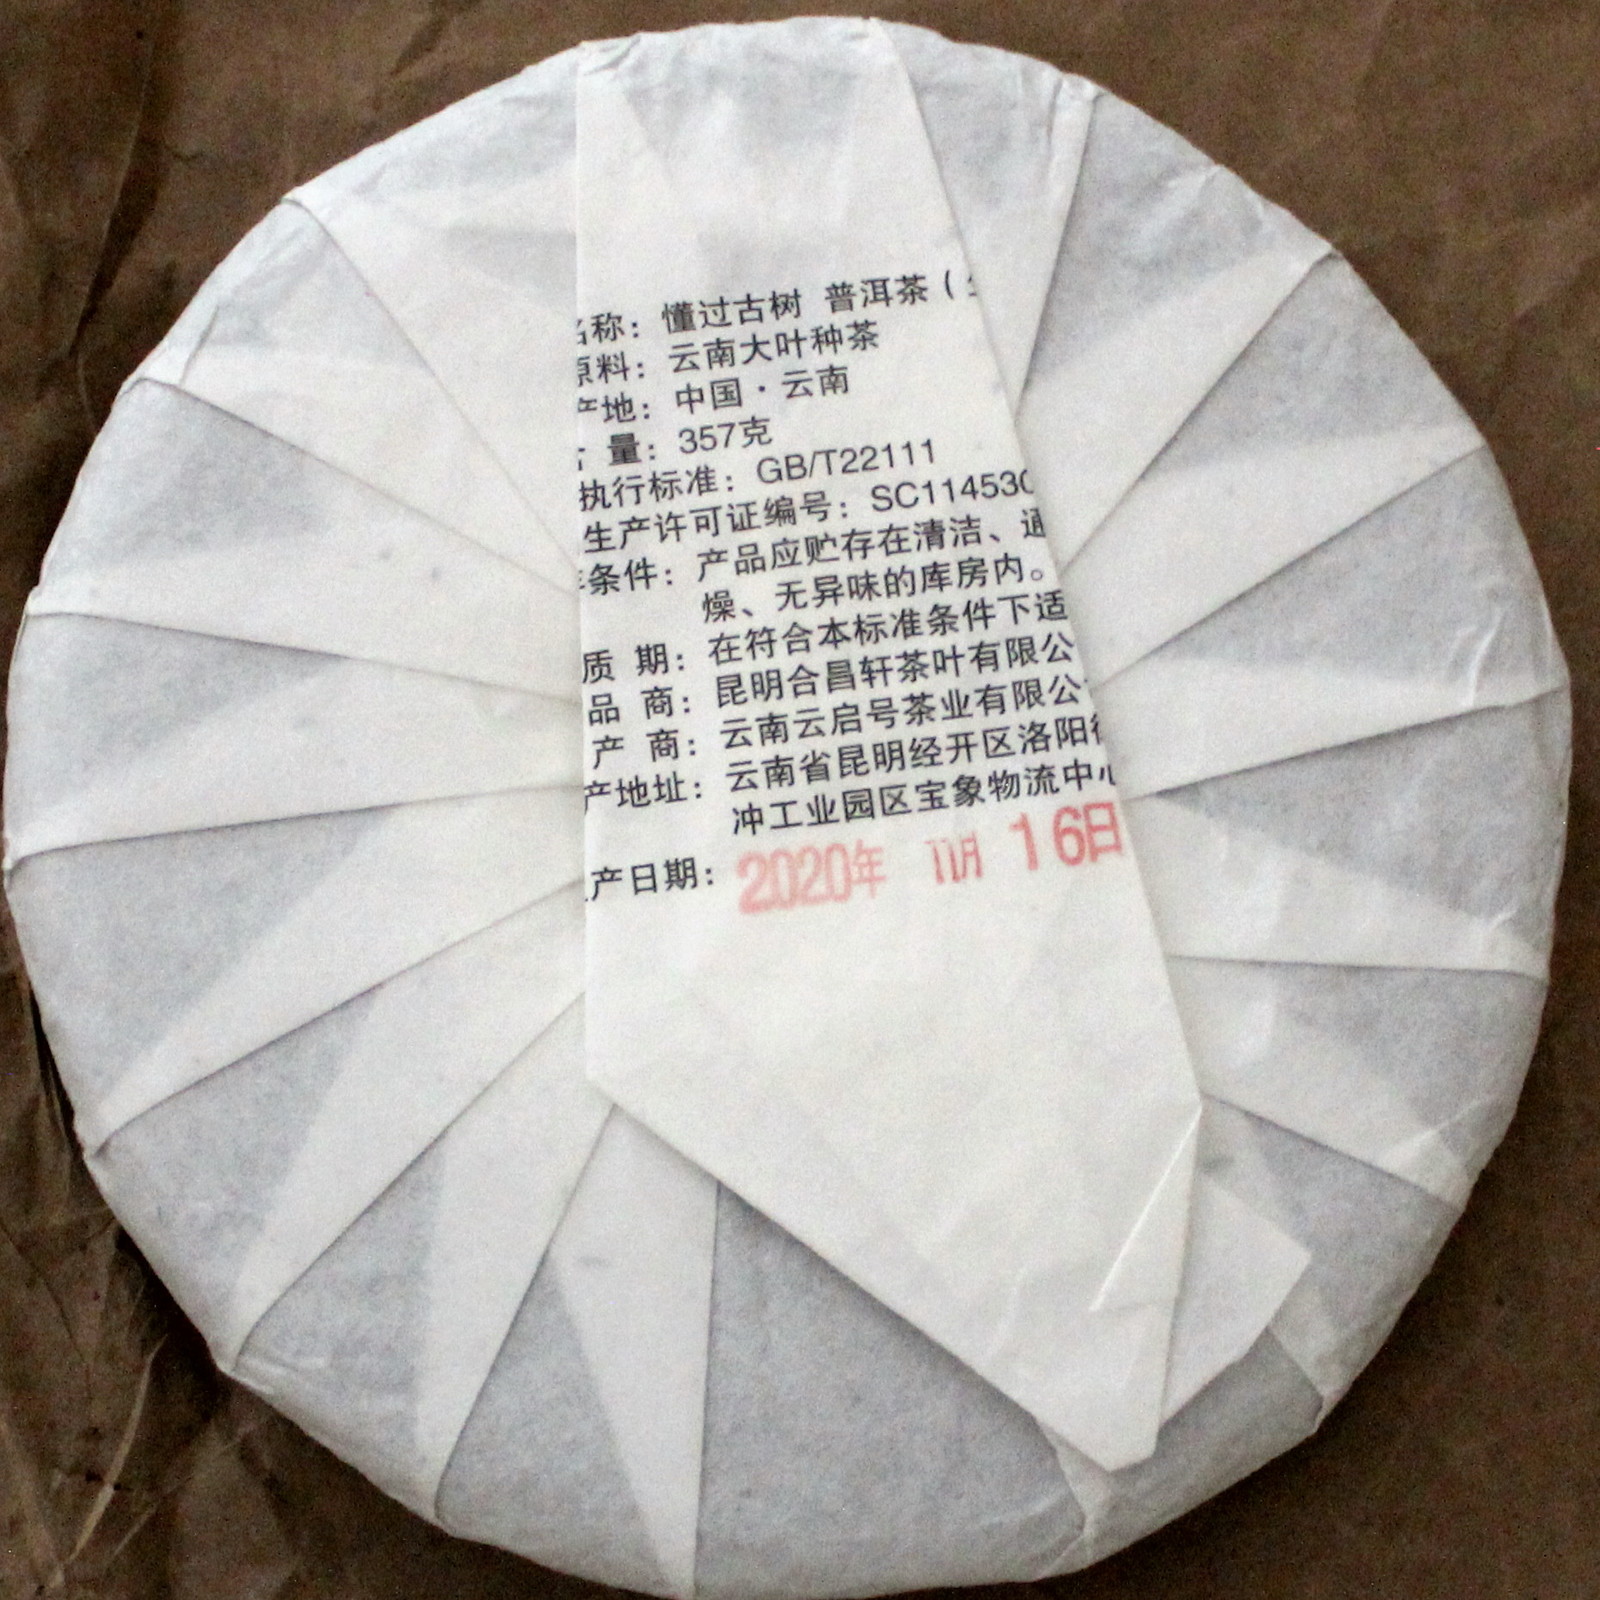 名称：懂过古树 普洱茶（
原料：云南大叶种茶
产地：中国·云南
量：357克
执行标准：GB/T22111
生产许可证编号：SC114530
条件：产品应贮存在清洁、通
燥、无异味的库房内。
质 期：在符合本标准条件下适
品 商：昆明合昌轩茶叶有限公
产 商：云南云启号茶业有限公
产地址：云南省昆明经开区洛阳街
冲工业园区宝象物流中心
产日期：2020年 11月 16日